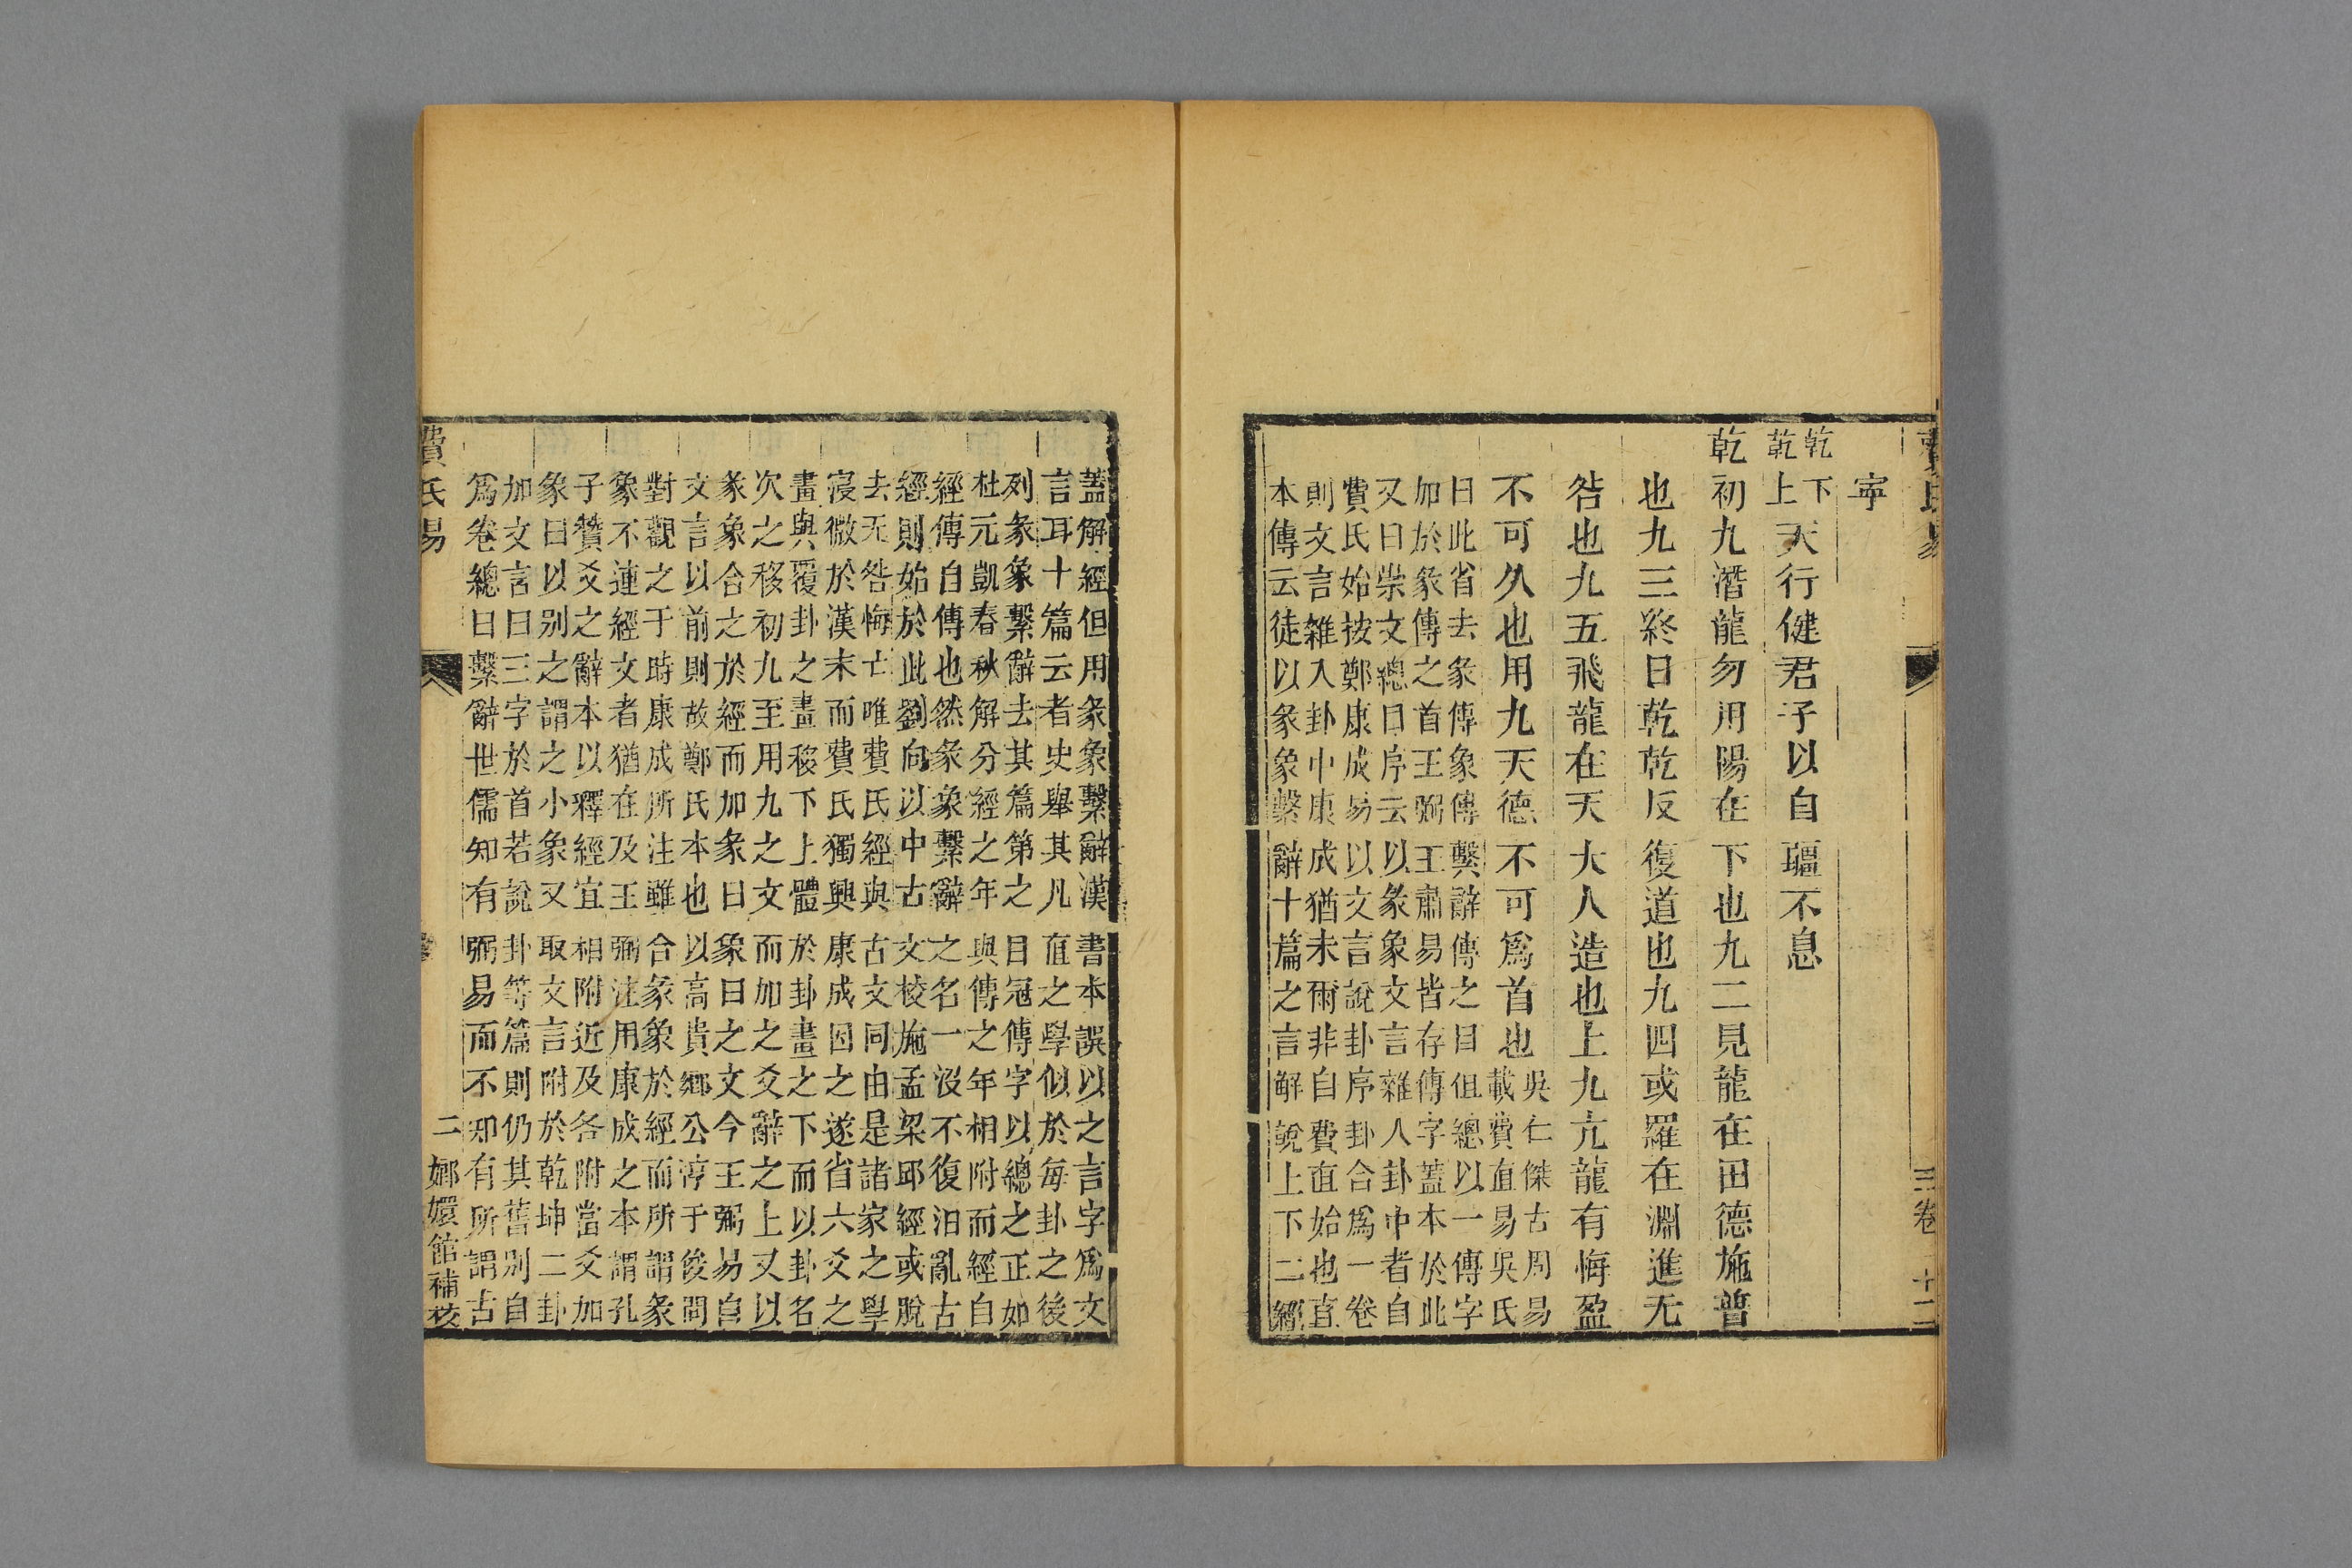 費氏易 三卷 十二
寧
乾下
乾上
天行健君子以自彊不息
乾初九潛龍勿用陽在下也九二見龍在田德施普
也九三終日乾乾反復道也九四或羅在淵進无
咎也九五飛龍在天大人造也上九亢龍有悔盈
不可久也用九天德不可爲首也
吳仁傑古周易
載費直易吳氏
曰此省去彖傳象傳繫辭傳之目但總以一傳字
加於彖傳之首王弼王肅易皆存傳字蓋本於此
又曰崇文總目序云以彖象文言雜入卦中者自
費氏始按鄭康成易以文言說卦序卦合爲一卷
則文言雜入卦中康成猶未爾非自費直始也直
本傳云徒以彖象繫辭十篇之言解說上下二經
蓋解經但用彖象繫辭漢書本誤以之言字爲文
言耳十篇云者史舉其凡直之學似於每卦之後
列彖象繫辭去其篇第之目冠傳字以總之正如
杜元凱春秋解分經之年與傳之年相附而經自
經傳自傳也然彖象繫辭之名一沒不復汨亂古
經則始於此劉向以中古文校施孟梁邱經或脫
去无咎悔亡唯費氏經與古文同由是諸家之學
寖微於漢末而費氏獨興康成因之遂省六爻之
畫與覆卦之畫移下上體於卦畫之下而以卦名
次之移初九至用九之文而加之爻辭之上又以
彖象合之於經而加彖曰象曰之文今王弼易自
文言以前則故鄭氏本也以高貴鄉公淳于俊問
對觀之于時康成所注雖合彖象於經而所謂彖
象不連經文者猶在及王弼注用康成之本謂孔
子贊爻之辭本以釋經宜相附近及各附當爻加
象曰以別之謂之小象又取文言附於乾坤二卦
加文言曰三字於首若說卦等篇則仍其舊別自
爲卷總曰繫辭世儒知有弼易而不知有所謂古
費氏易 二 嫏嬛館補校